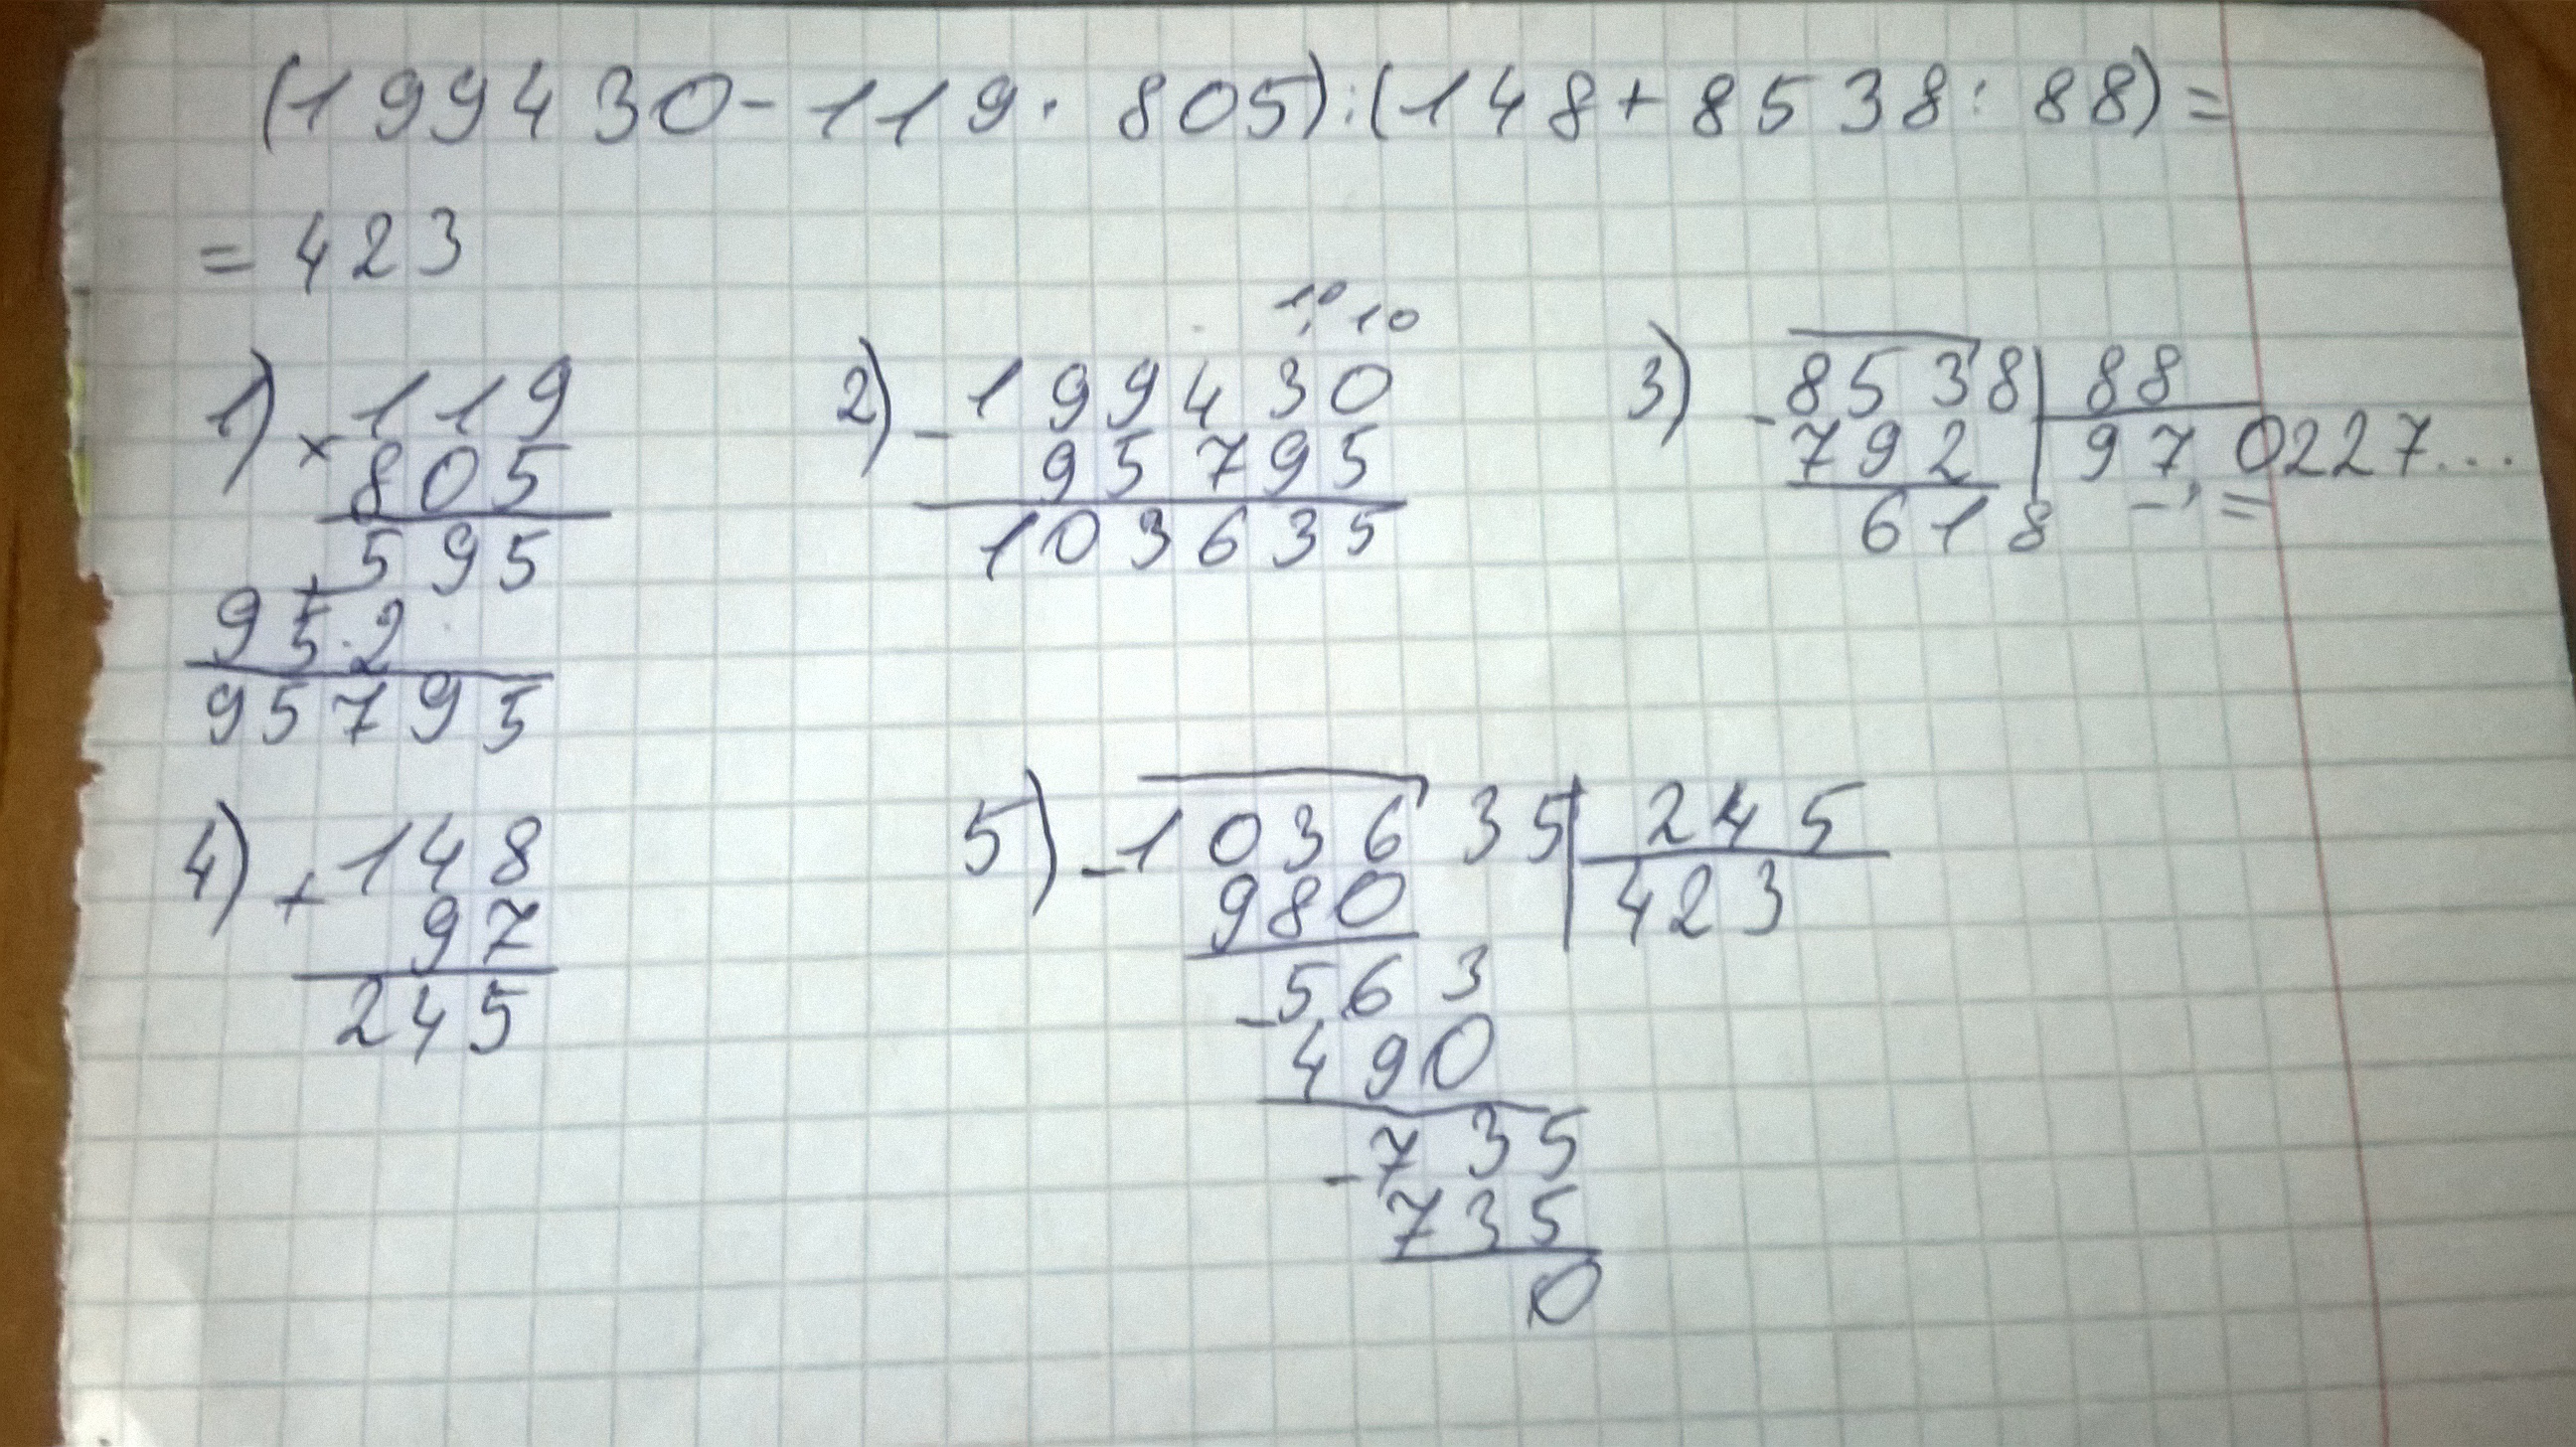 (199430-119·805):(148+8538:88)=
=423
1) ×119
805
595
+
952
95795
2) -199430
10 10
95795
103635
3) -8538|88
792 97,0227...
618
4) +148
97
245
5) -103635|245
980 423
-563
490
-735
735
0